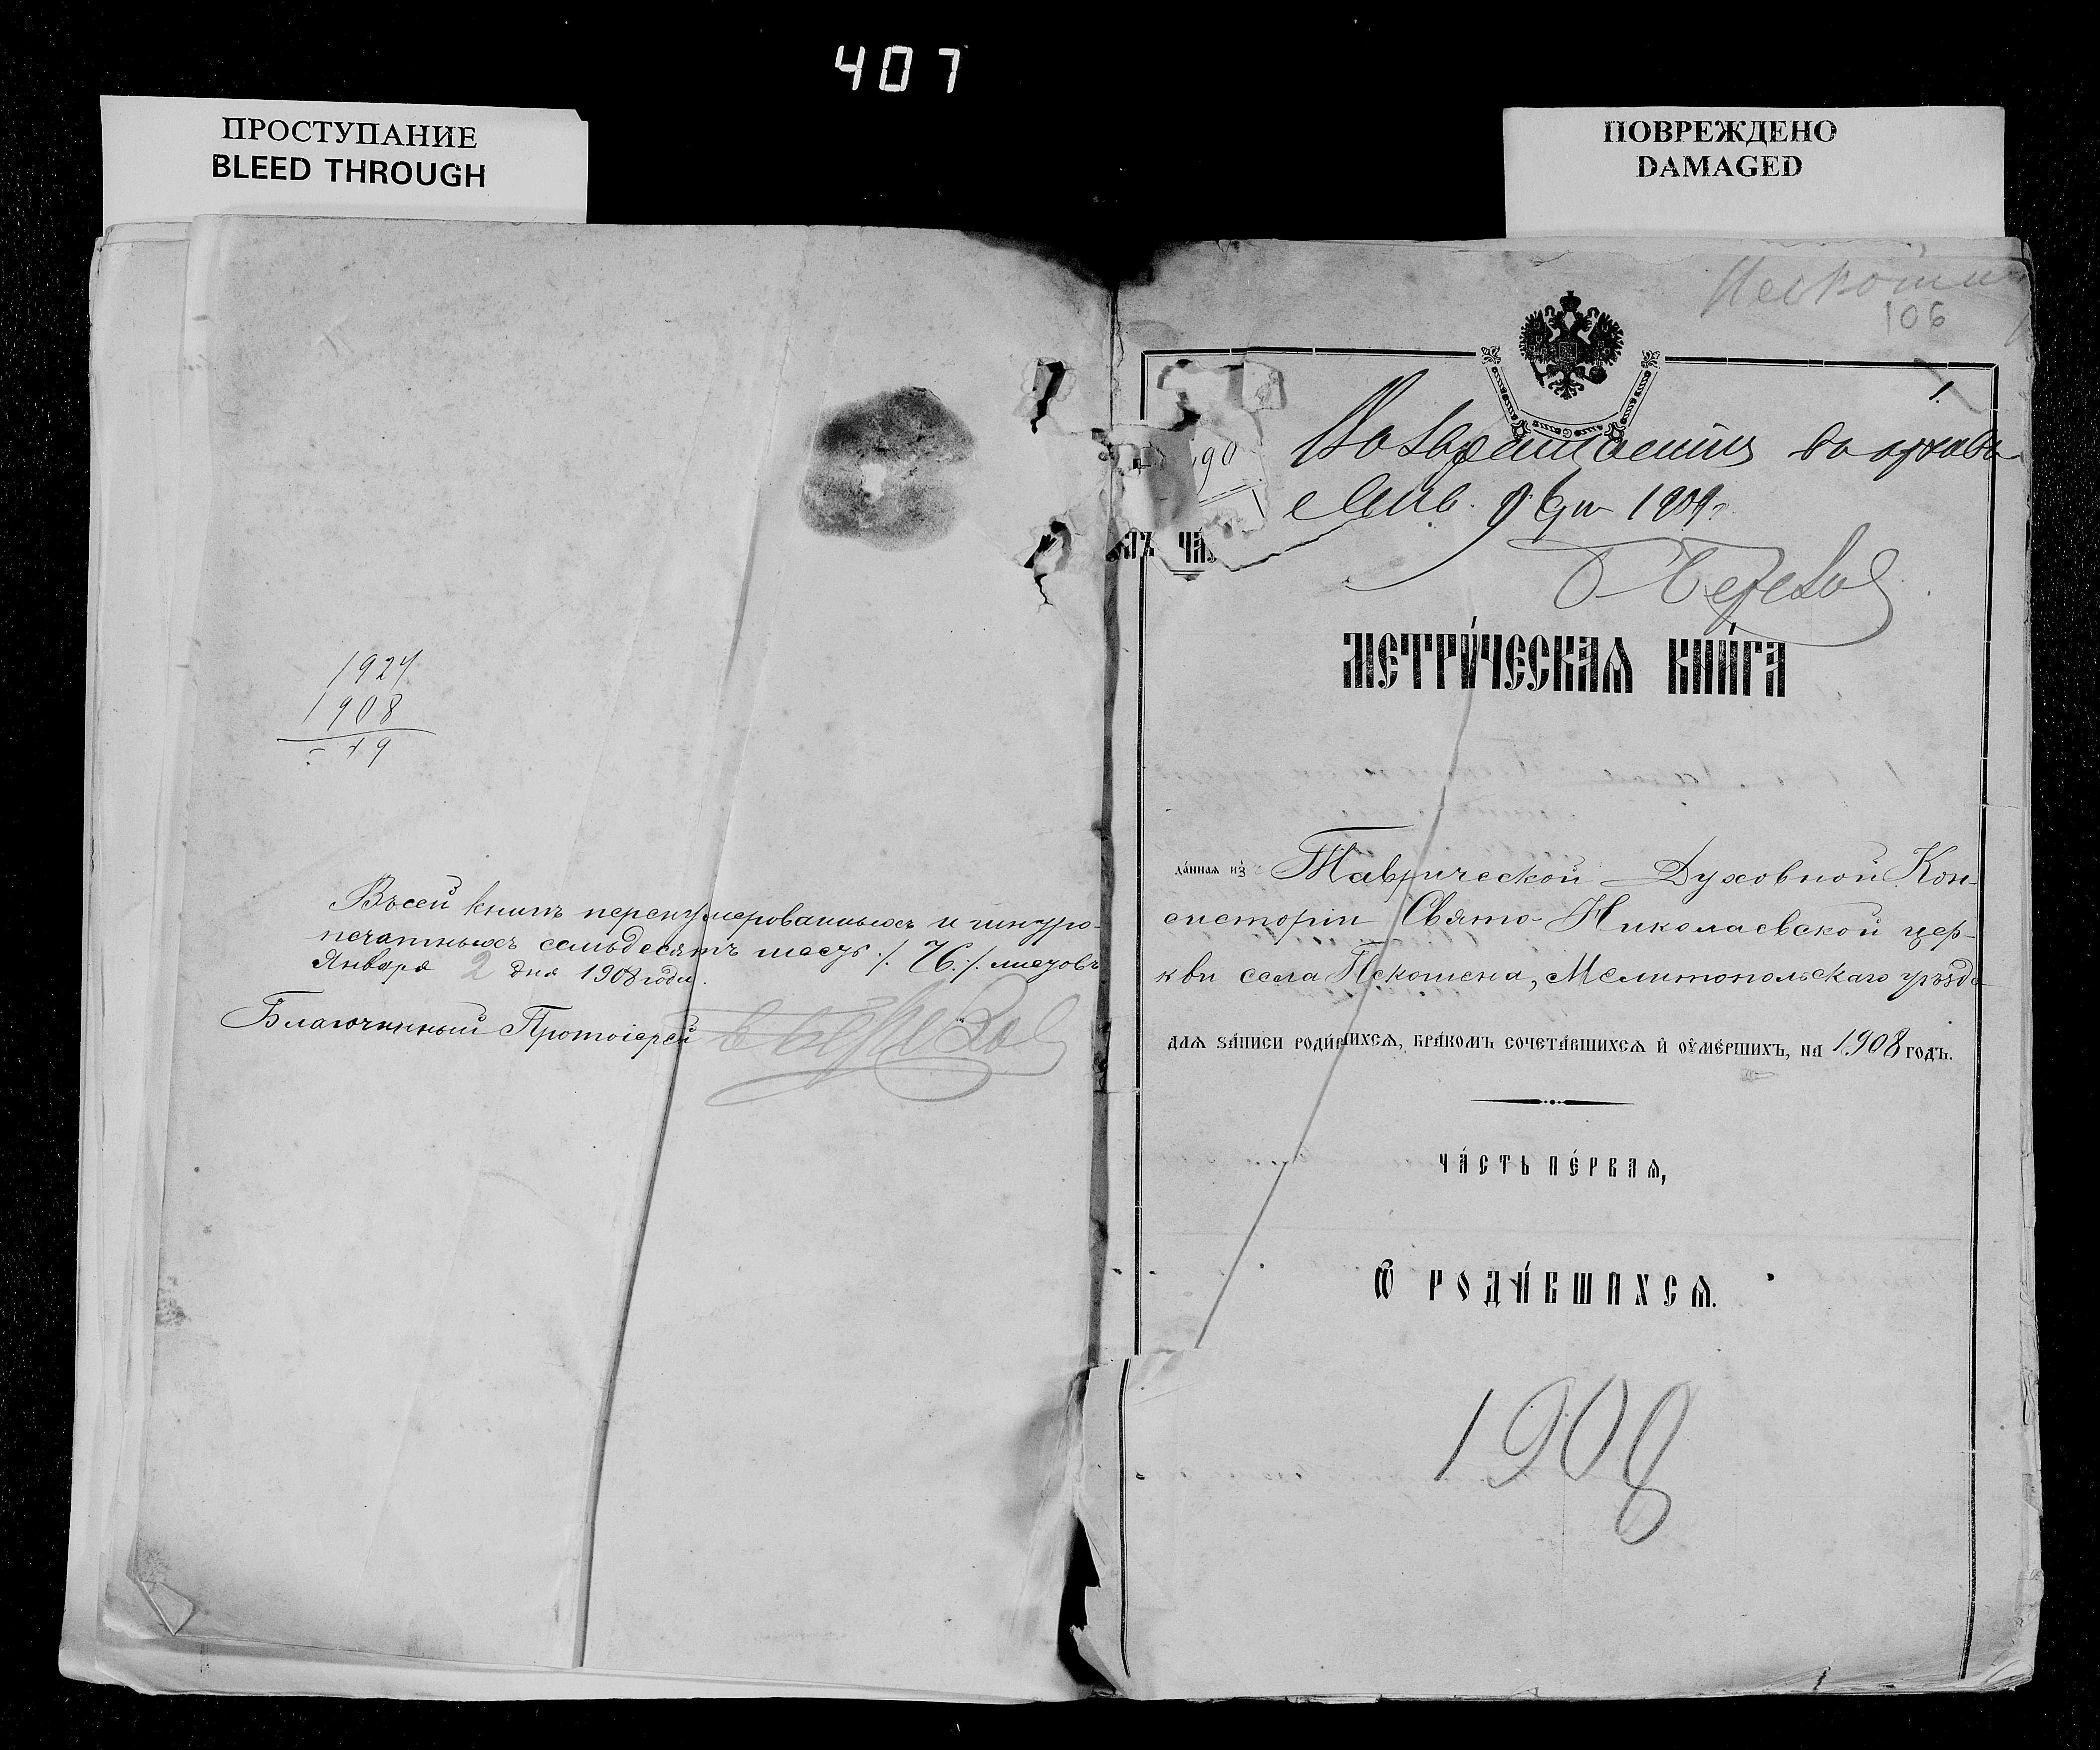 407
ПРОСТУПАНИЕ
BLEED THROUGH
ПОВРЕЖДЕНО
DAMAGED
1924
1908
19
Въ сей книгѣ перенумерованныхъ и шнуро-
печатныхъ семьдесятъ шесть /. 76 ./. листовъ
Января 2 дня 1908 года.
Благочинный Протоіерей
106
1
90
1909 г.
МЕТРИ́ЧЕСКАѦ КНИ́ГА
да́ннаѧ из̾ Таврической Духовной Кон-
систоріи Свято-Николаевской цер-
кви села Пескошена, Мелитопольскаго уѣзда
длѧ за́писи роди́вшихсѧ, бра́комъ сочета́вшихсѧ и҆ оу҆ме́ршихъ, на 1908 годъ.
ЧА́СТЬ ПЕ́РВАѦ,
Ѡ҆ РОДИ́ВШИХСѦ.
1908